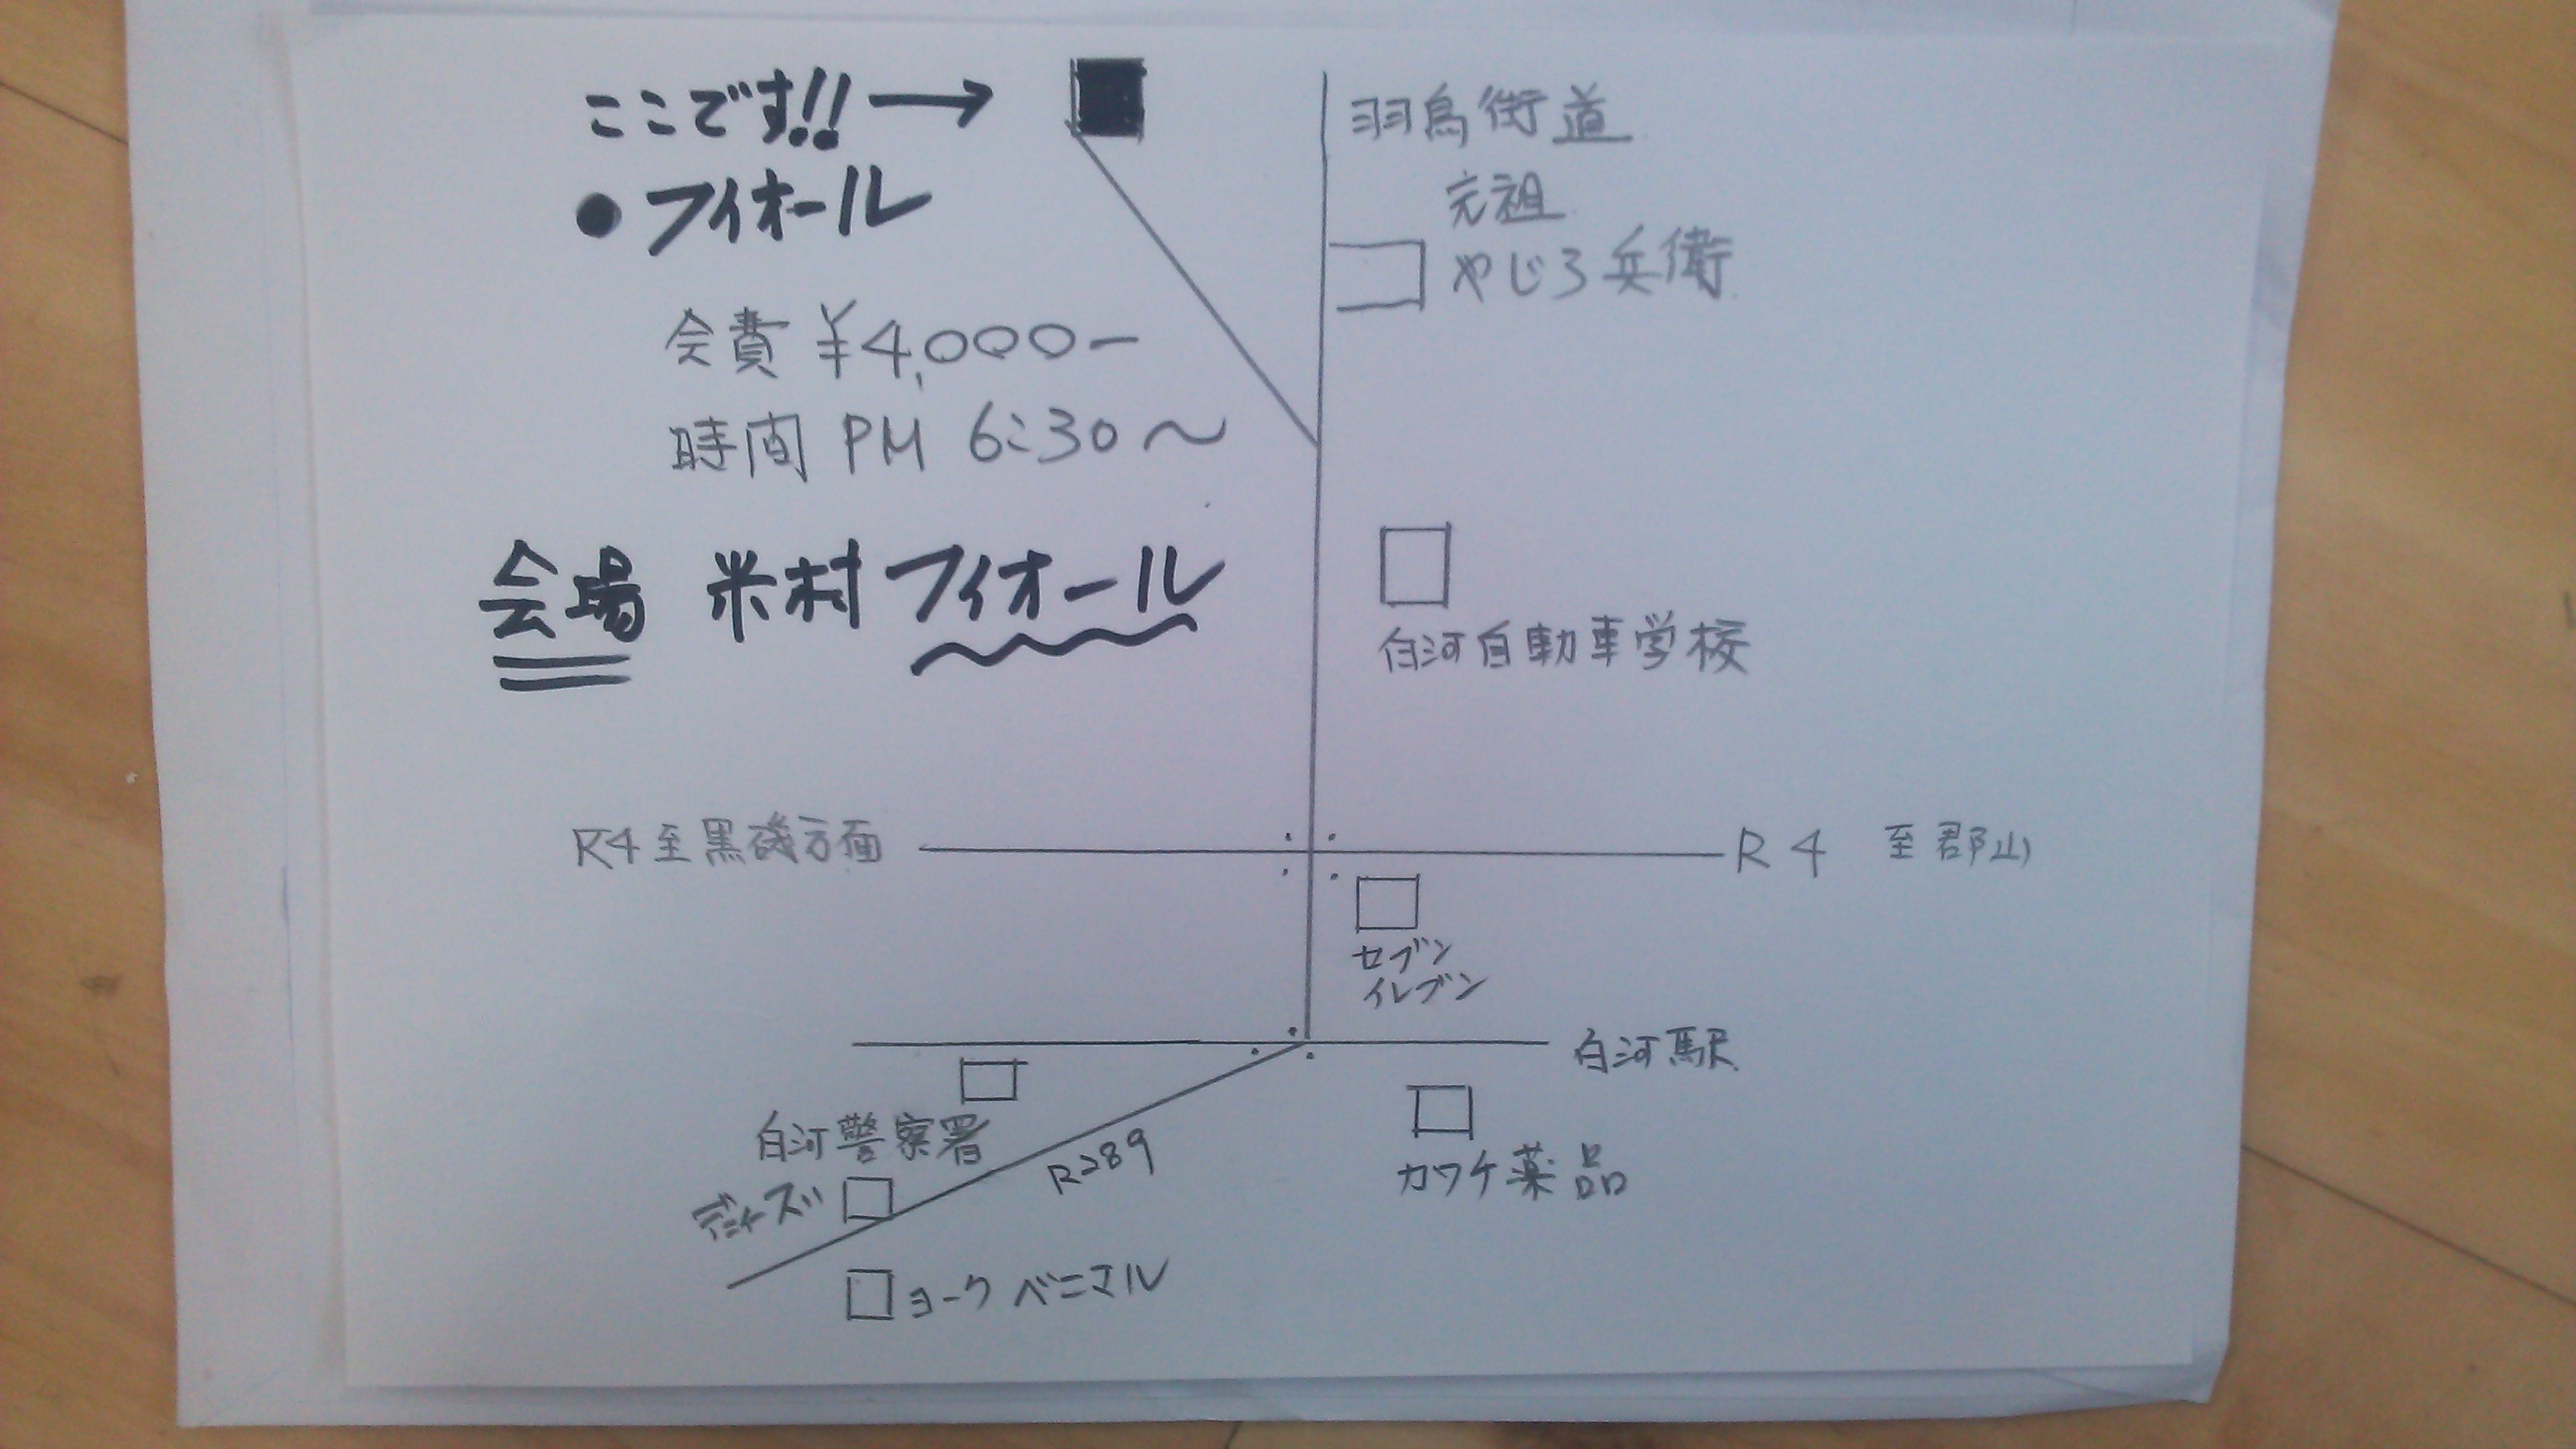 ここです!!→
●フィオール
会費 ¥4,000ー
時間 PM 6:30〜
会場 米村 フィオール
羽鳥街道
元祖
やじろ兵衛
白河自動車学校
R4至黒磯方面
R4 至郡山
セブン
イレブン
白河駅
白河警察署
R289
カワチ薬品
ヨークベニマル